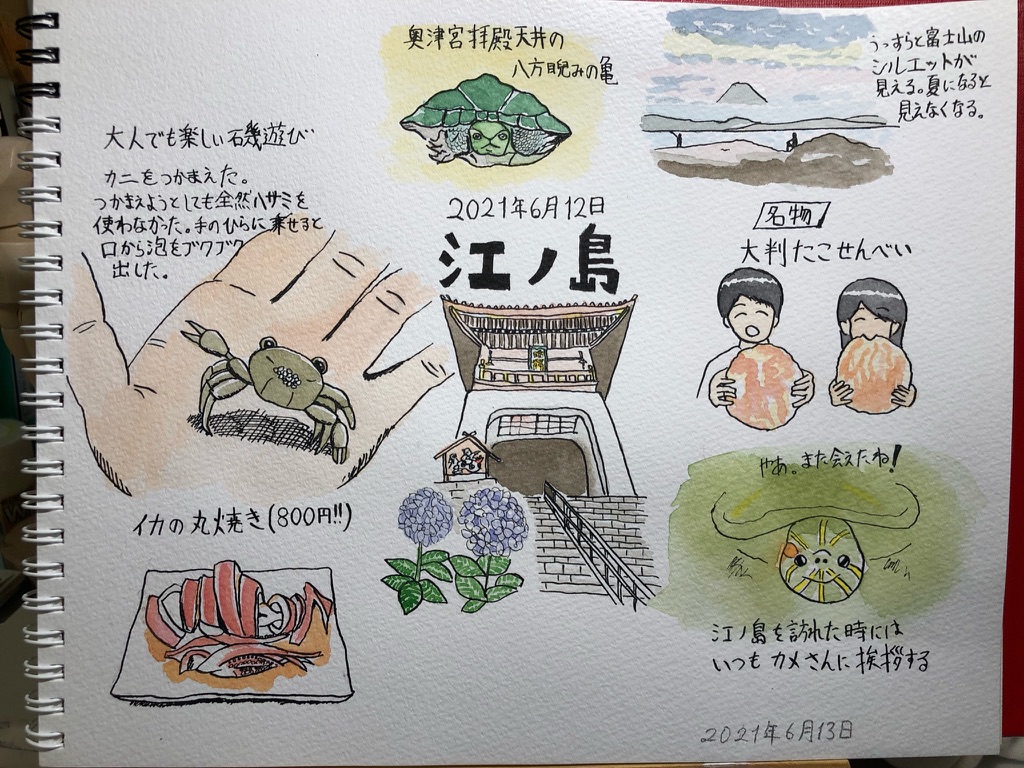 奥津宮拝殿天井の
八方睨みの亀
うっすらと富士山の
シルエットが
見える。夏になると
見えなくなる。
大人でも楽しい石磯遊び
カニをつかまえた。
つかまえようとしても全然ハサミを
使わなかった。手のひらに乗せると
口から泡をブクブク
出した。
2021年6月12日
江ノ島
名物
大判たこせんべい
イカの丸焼き(800円!!)
やあ。また会えたね!
江ノ島を訪れた時には
いつもカメさんに挨拶する
2021年6月13日